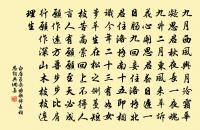 九月西風興月冷霜華
凝思君秋夜長一夜魂
九升二月東風來草坼
花心開思君春日遲一
日腸九回妾住洛橋北
君住洛橋南十五即相
識今年二十三有如女
蘿草生在松之側蔓短
枝苦高縈回上不得人
言人有願願至天必成
願作遠方獸步步比肩
行願作深山木枝枝連
理生